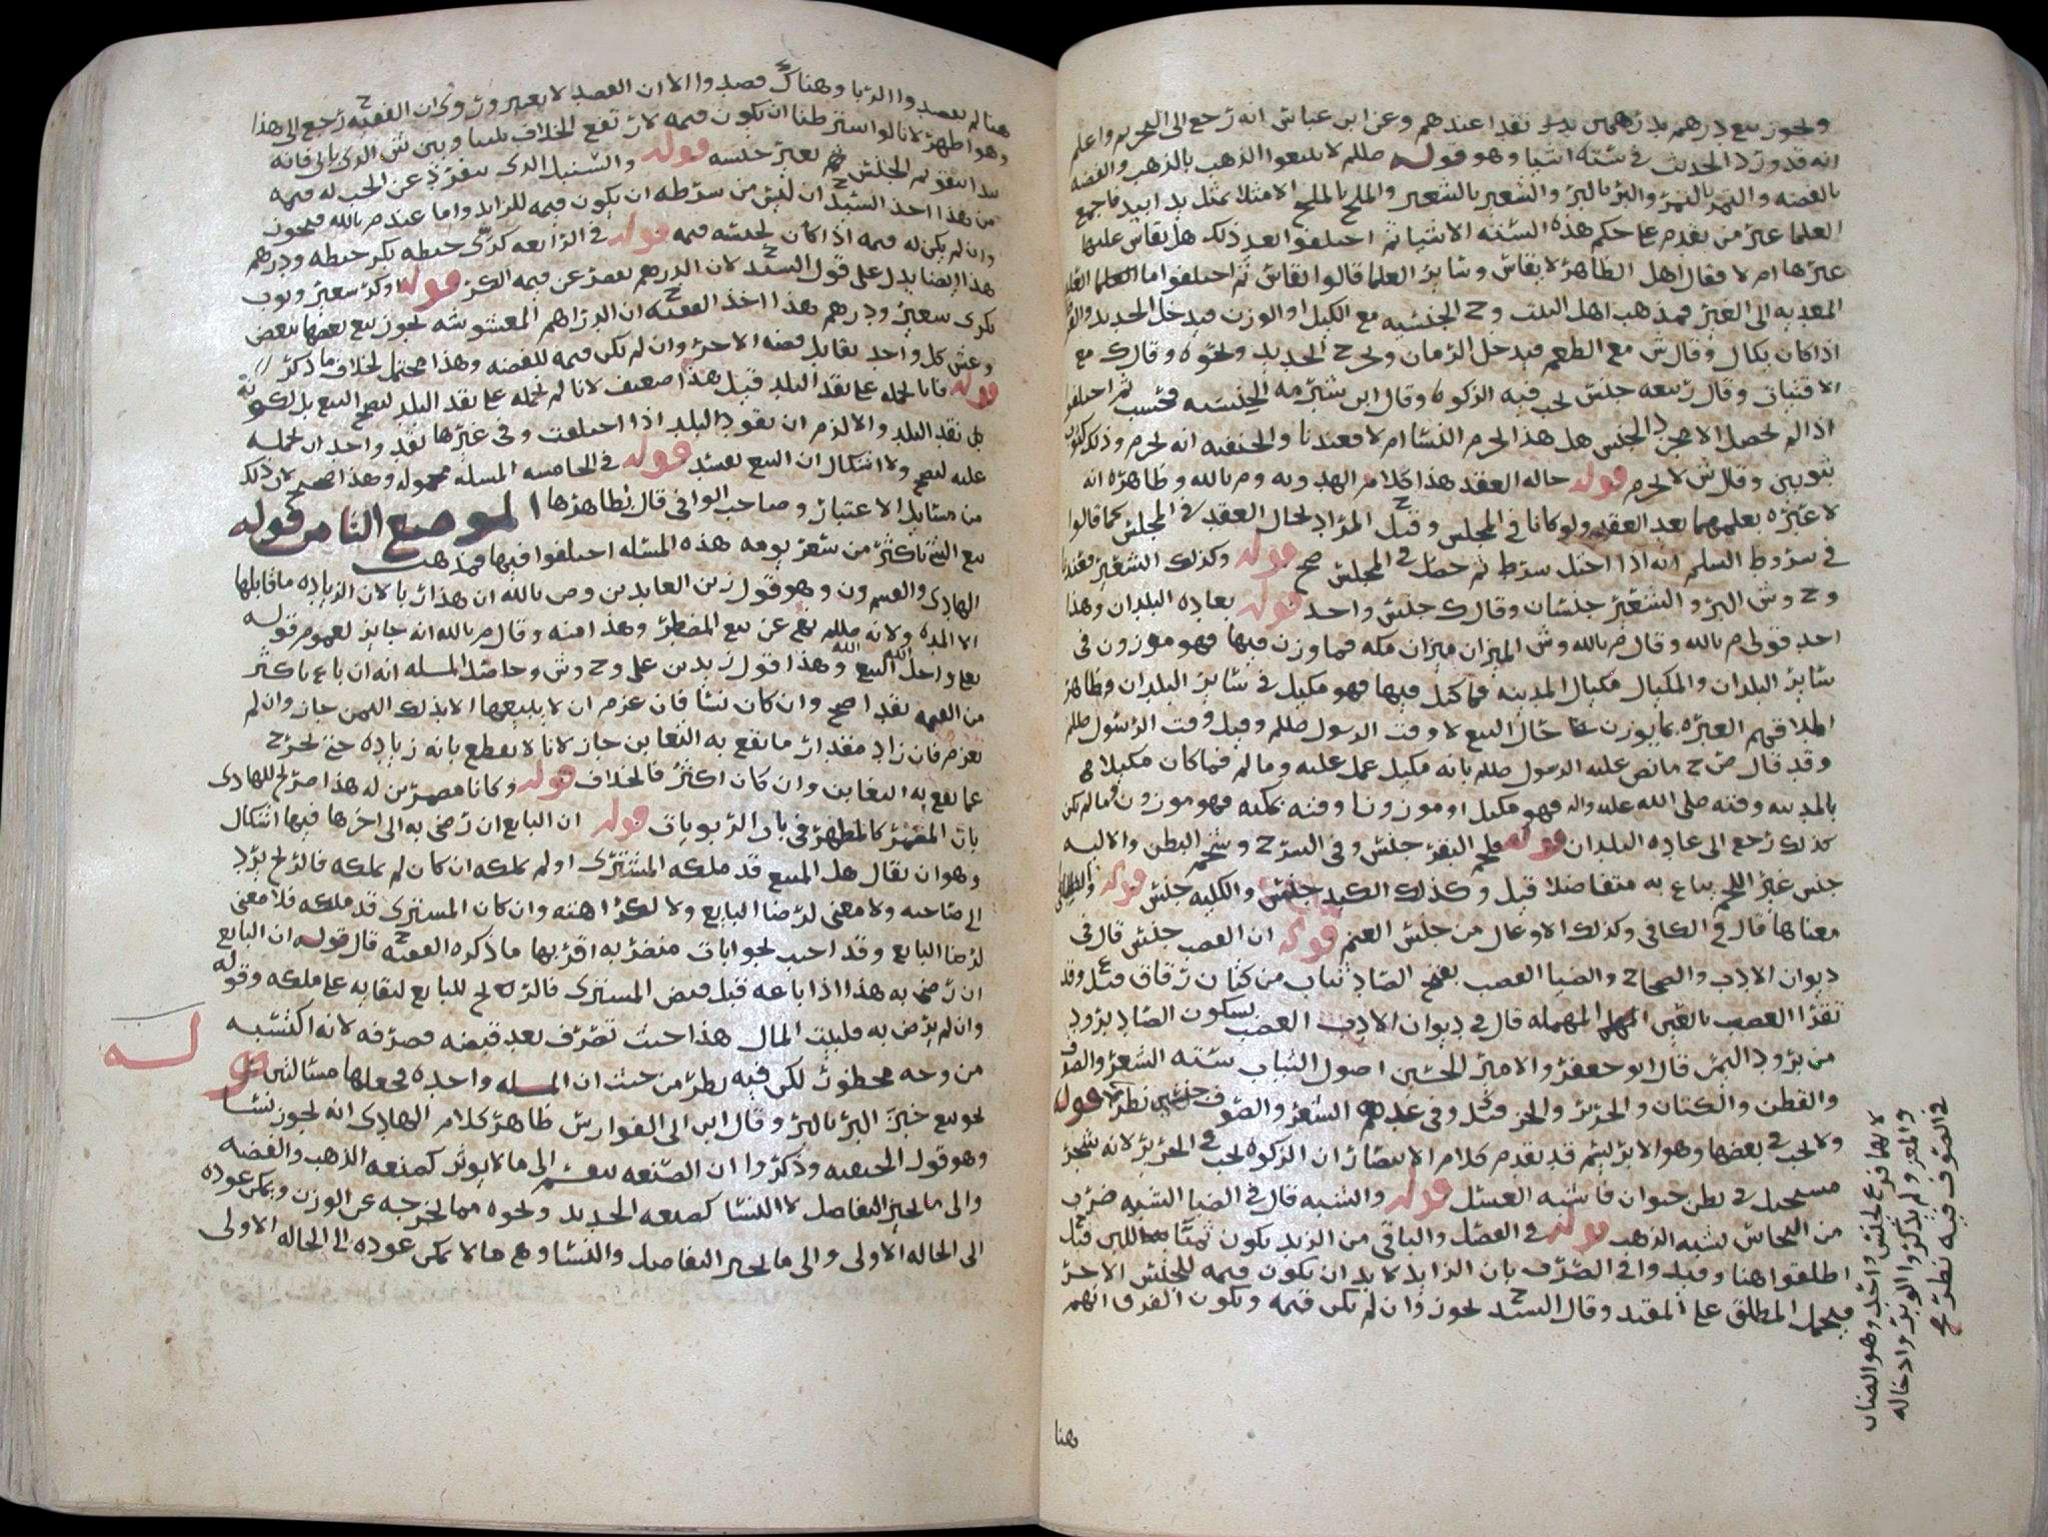 ويجوز بيع درهم بدرهمين يدا نقدا عندهم وعن ابن عباس انه رجع الى التحريم واعلم
انه قد ورد الحديث في سته اشيا وهو قوله صللم لا تبيعوا الذهب بالذهب والفضه
بالفضه والتمر بالتمر والبر بالبر والشعير بالشعير والملح بالملح الا مثلا بمثل يدا بيد فاجمع
العلما عير من تقدم على حكم هذه السته الاشيا ثم اختلفوا بعد ذلك هل يقاس عليها
غيرها ام لا فقال اهل الظاهر لا يقاس وسائر العلما قالوا يقاس ثم اختلفوا اما العلما
المعديه الى الغير فمذهب اهل البيت وح الجنسيه مع الكيل او الوزن فيدخل الحديد
اذا كان يكال وقال ش مع الطعم فيدخل الرمان ويخرج الحديد ونحوه وقال ك مع
الاقتيات وقال ربيعه جنس يجب فيه الزكوه وقال ابن شبرمه الجنسيه فحسب ثم اختلفوا
اذا لم يحصل الا مجرد الجنس هل هذا يحرم النسا ام لا فعندنا والحنفيه انه يحرم وذلك
بثوبين وقال ش لا يحرم قوله حاله العقد هذا كلام المهدويه وم بالله وظاهره انه
لا عبره بعلمهما بعد العقد ولو كانا في المجلس وقيل ح المراد بحال العقد في المجلس كما قالوا
في شروط السلم انه اذا اختل شرط ثم حصل في المجلس صح قوله وكذلك الشعير فعندنا
وح وش البر والشعير جنسان وقال ك جنس واحد قوله بعاده البلدان وهذا
احد قولي م بالله وقال م بالله وش الميزان ميزان مكه فما وزن فيها فهو موزون في
سائر البلدان والمكيال مكيال المدينه فما كيل فيها فهو مكيل في سائر البلدان وظاهر
اطلاقهم العبره بما يوزن حال البيع لا وقت الرسول صللم وقيل وقت الرسول صللم
وقد قال ص ح ما نص عليه الرسول صللم بانه مكيل عمل عليه وما لم فما كان مكيلا
بالمدينه وقته صلى الله عليه واله فهو مكيل او موزونا وقته بمكه فهو موزون فما لم يكن
كذلك رجع الى عاده البلدان قوله فلحم البقر جنس وفي الشرح وشحم البطن والاليه
جنس غير اللحم يباع به متفاضلا قيل وكذلك الكبد جنس والكليه جنس قوله
معناها قال في الكافي وكذلك الاوعال من جنس الغنم قوله ان العصب جنس قال في
ديوان الادب والصحاح والضيا العصب بفتح الصاد ثياب من كتان رقاق قيل ع وقد
تقرا العصب بالغين المهمله قال في ديوان الادب العصب بسكون الصاد برود
من برود اليمن قال ابو جعفر والامير الحسين اصول الثياب سته الشعر والصوف
والقطن والكتان والحرير والخز قيل وفي عدهم الشعر والصوف جنسين نظر قوله
ولا يجب في بعضها وهو الابريسم قد تقدم كلام الانتصار ان الزكوه تجب في الحرير لانه شجر
مستحيل في بطن حيوان فاشبه العسل قوله والشبه قال في الضيا الشبه ضرب
من النحاس يشبه الذهب قوله في الفصل والباقي من الزبد يكون ثمنا للبن قيل
اطلقوا هنا وقيدوا في الصرف بان الزايد لا بد ان يكون قيمه للجنس الاخر
فيحمل المطلق على المقيد وقال السيد ح يجوز وان لم يكن قيمه ويكون الفرق انهم
هنا
لانهما فرع لجنس واحد وهو الضان
والمعز ولم يذكروا الوبر وادخاله
في الصوف فيه نظر
هنا لم يقصدوا الربا وهناك قصدوا الا ان القصد لا يعتبر وروي ان الفقيه ح رجع الى هذا
وهو اظهر لانا لو اشترطنا ان يكون قيمه لارتفع الخلاف بيننا وبين ش الذي ياتي فانه
من هذا اخذ السيد ح ان ليس من شرطه ان يكون قيمه للزايد واما عند م بالله فيجوز
وان لم يكن له قيمه اذا كان لجنسه قيمه قوله في الرابعه كري حنطه بكر حنطه ودرهم
هذا ايضا يدل على قول السيد ح لان الدرهم يقصر عن قيمه الكر قوله او كر شعير وثوب
بكري شعير ودرهم هذا اخذ الفقيه ح ان الدراهم المغشوشه يجوز بيع بعضها ببعض
وغش كل واحد يقابل فضه الاخر وان لم يكن قيمه للفضه وهذا محتمل لخلاف ما ذكر
قوله فانا نحمله على نقد البلد قيل هذا ضعيف لانا لم نحمله على نقد البلد ليصح البيع بل لكونه
كل نقد البلد والا لزم ان نقود البلد اذا اختلفت وفي غيرها نقد واحد ان نحمله
عليه ليصح ولا اشكال ان البيع يفسد قوله في الخامسه المسله محموله وهذا لان ذلك
من مسايل الاعتبار وصاحب الوافي قال بظاهرها الموضع الثامن قوله
بيع الشي باكثر من سعر يومه هذه المسله اختلفوا فيها فمذهب
الهادي والقسم ون وهو قول زين العابدين وص بالله ان هذا ربا لان الزياده ما قابلها
الا المده ولانه صللم نهى عن بيع المضطر وهذا منه وقال م بالله انه جايز لعموم قوله
تعلى واحل الله البيع وهذا قول زيد بن على وح وش وحاصل المسله انه ان باع باكثر
من القيمه نقدا صح وان كان نسا فان عزم ان لا يبيعها الا بذلك الثمن جاز وان لم
يعزم فان زاد مقدار ما يقع به التغابن جاز لانا لا نقطع بانه زياده حتى تخرج
عما يقع به التغابن وان كان اكثر فالخلاف قوله وكانا مضمرين له هذا صرح للهادي
بان المضمر كالمظهر في باب الربويات قوله ان البايع ان رضي به الى اخرها فيها اشكال
وهو ان يقال هل المبيع قد ملكه المشتري او لم يملكه ان كان لم يملكه فالربح يرد
الى صاحبه ولا معنى لرضا البايع ولا لكراهته وان كان المشتري قد ملكه فلا معنى
لرضا البايع وقد اجيب بجوابات منضربه اقربها ما ذكره الفقيه ح قال قوله ان البايع
ان رضي به هذا اذا باعه قبل قبض المشتري فالربح للبايع لبقايه على ملكه وقوله
وان لم يرض به فلبيت المال هذا حيث تصرف بعد قبضه فصرفه لانه اكتسبه
من وجه محظور لكن فيه نظر من حيث ان المسله واحده فجعلها مسالتين قوله
نحو بيع خبز البر بالبر وقال ابن ابي الفوارس ظاهر كلام الهادي انه يجوز نسا
وهو قول الحنفيه وذكروا ان الصنعه تنقسم الى ما لا يوثر كصنعه الذهب والفضه
والى ما يجيز التفاضل لا النسا كصنعه الحديد ونحوه مما يخرجه عن الوزن ويمكن عوده
الى الحاله الاولى والى ما يجيز التفاضل والنسا وهو ما لا يمكن عوده الى الحاله الاولى